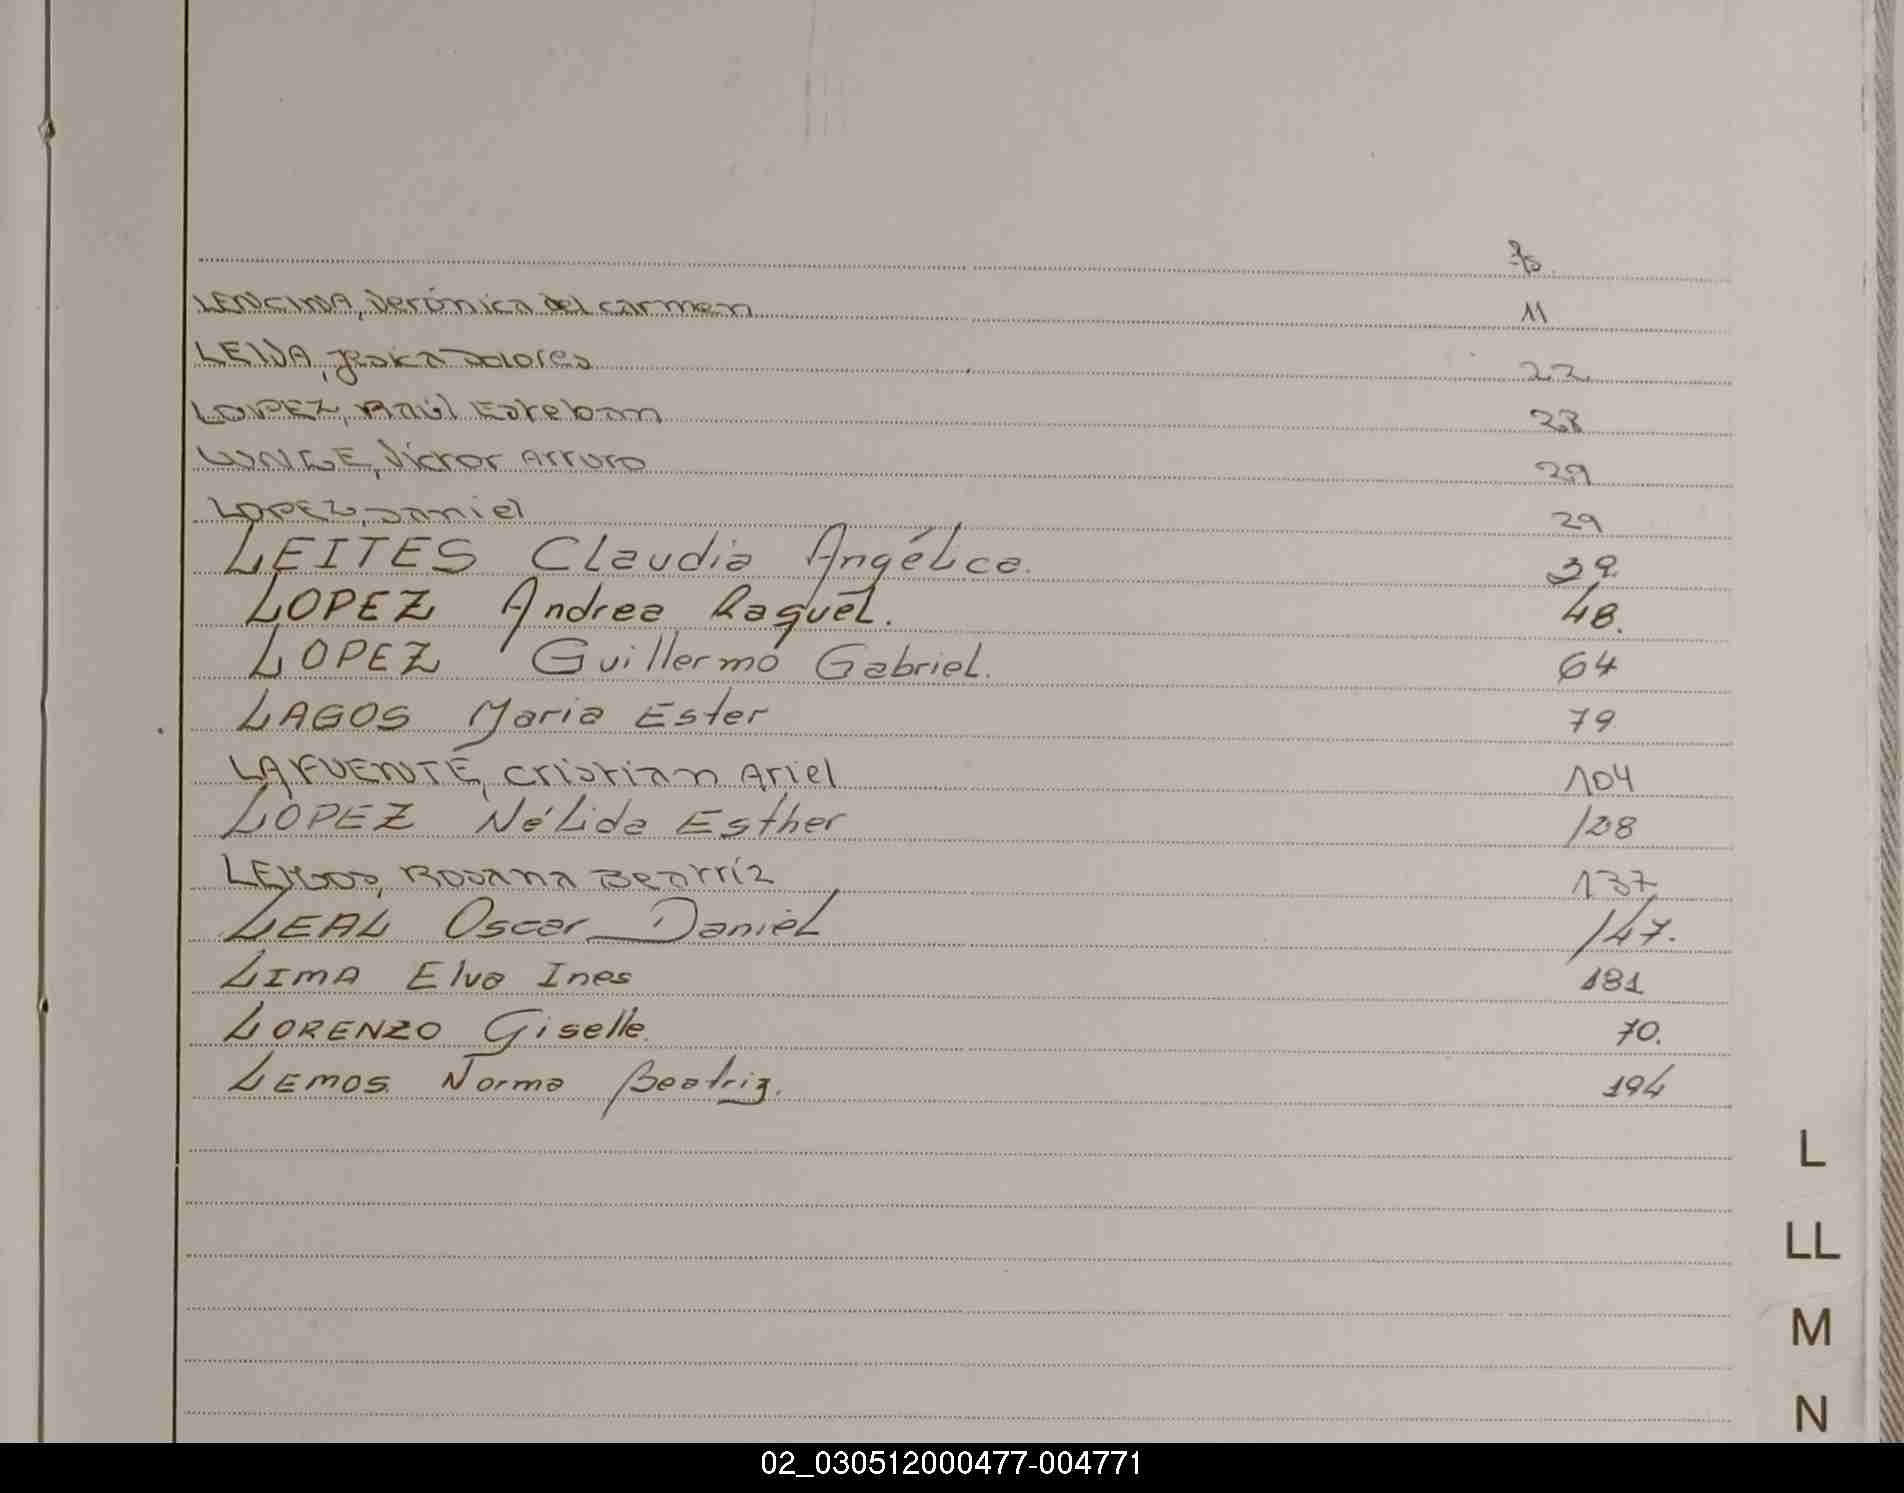 fs.
LENCINA, Verónica del carmen 11
LEIVA, Jesika Dolores 22
LOPEZ, Raúl Esteban 28
LUNGE, Víctor Arturo 29
LOPEZ, Daniel 29
LEITES Claudia Angélica. 39.
LOPEZ Andrea Raquel. 48.
LOPEZ Guillermo Gabriel. 64
LAGOS Maria Ester 79
LAFUENTE, cristian Ariel 104
LOPEZ Nélida Esther 128
LEMOS, Rosana Beatríz 137
LEAL Oscar Daniel 147.
LIMA Elva Ines 181
LORENZO Giselle. 70.
LEMOS Norma Beatriz. 194
L
LL
M
N
02_030512000477-004771